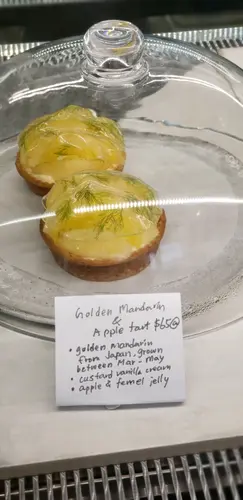 Golden Mandarin
&
Apple tart $65@
• golden mandarin
from Japan, grown
between Mar - May
• custard vanilla cream
• apple & fennel jelly